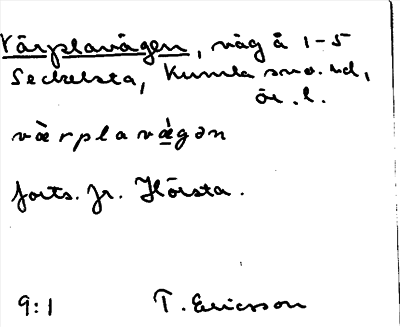 Värplavägen, väg å 1-5
Seckelsta, Kumla snd.
ör. l.
värplavä̀gən
forts. fr. Hörsta.
9:1 T. Ericsson